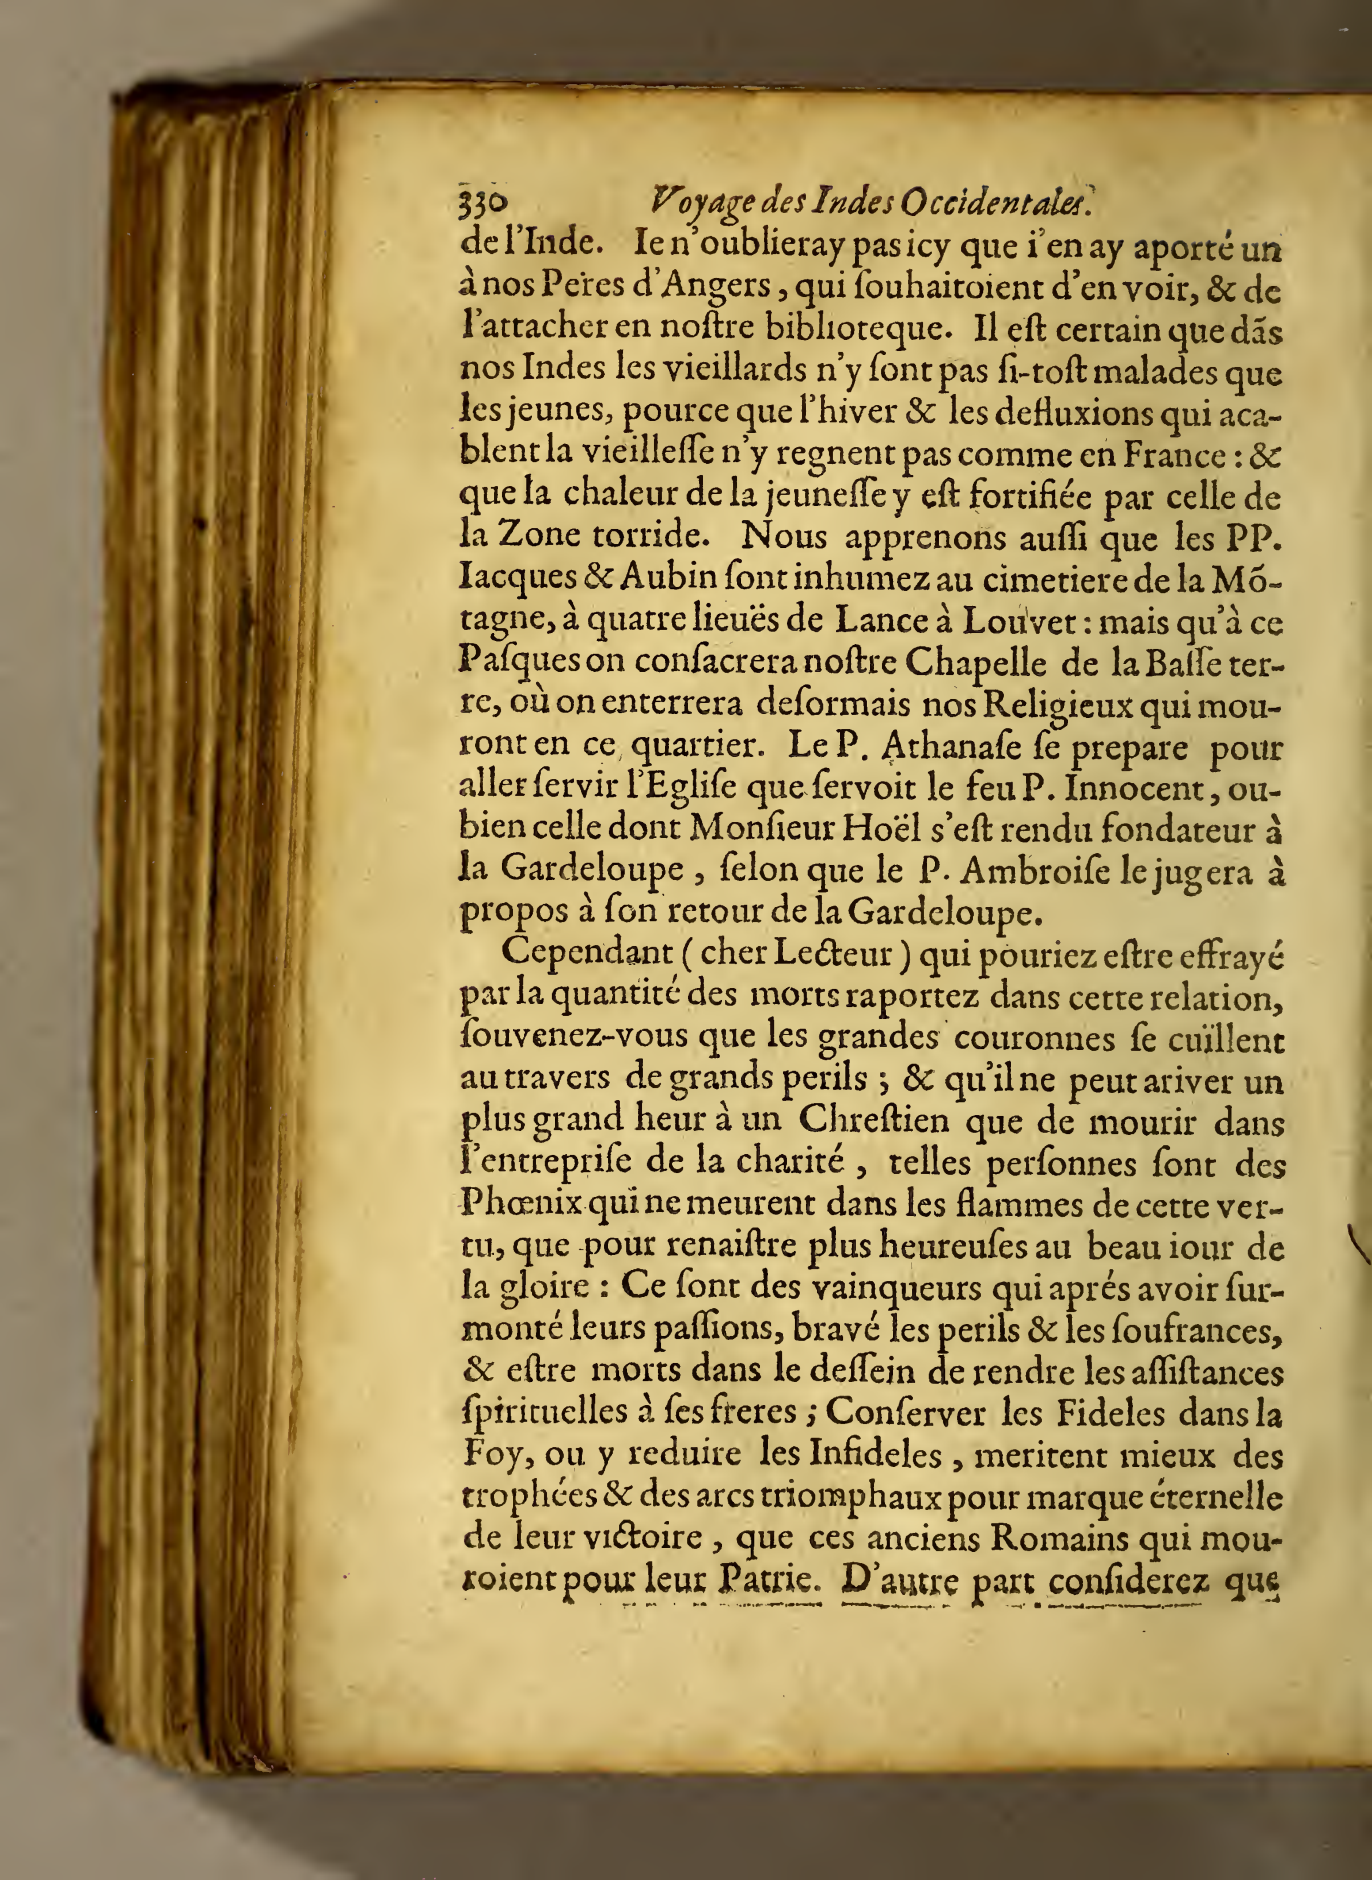 330 Voyage des Indes Occidentales.
de l'Inde. Ie n'oublieray pas icy que i'en ay aporté un
à nos Peres d'Angers, qui ſouhaitoient d'en voir, & de
l'attacher en noſtre biblioteque. Il eſt certain que dãs
nos Indes les vieillards n'y ſont pas ſi-toſt malades que
les jeunes, pource que l'hiver & les defluxions qui aca-
blent la vieilleſſe n'y regnent pas comme en France : &
que la chaleur de la jeuneſſe y eſt fortifiée par celle de
la Zone torride. Nous apprenons auſſi que les PP.
Iacques & Aubin ſont inhumez au cimetiere de la Mõ-
tagne, à quatre lieuës de Lance à Louvet : mais qu'à ce
Paſques on conſacrera noſtre Chapelle de la Baſſe ter-
re, où on enterrera deſormais nos Religieux qui mou-
ront en ce quartier. Le P. Athanaſe ſe prepare pour
aller ſervir l'Egliſe que ſervoit le feu P. Innocent, ou-
bien celle dont Monſieur Hoël s'eſt rendu fondateur à
la Gardeloupe, ſelon que le P. Ambroiſe le jugera à
propos à ſon retour de la Gardeloupe.
Cependant ( cher Lecteur ) qui pouriez eſtre effrayé
par la quantité des morts raportez dans cette relation,
ſouvenez-vous que les grandes couronnes ſe cuïllent
au travers de grands perils ; & qu'il ne peut ariver un
plus grand heur à un Chreſtien que de mourir dans
l'entrepriſe de la charité, telles perſonnes ſont des
Phœnix qui ne meurent dans les flammes de cette ver-
tu, que pour renaiſtre plus heureuſes au beau iour de
la gloire : Ce ſont des vainqueurs qui aprés avoir ſur-
monté leurs paſſions, bravé les perils & les ſoufrances,
& eſtre morts dans le deſſein de rendre les aſſiſtances
ſpirituelles à ſes freres ; Conſerver les Fideles dans la
Foy, ou y reduire les Infideles, meritent mieux des
trophées & des arcs triomphaux pour marque éternelle
de leur victoire, que ces anciens Romains qui mou-
roient pour leur Patrie. D'autre part conſiderez que